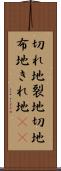 切れ地裂地切地
布地きれ地